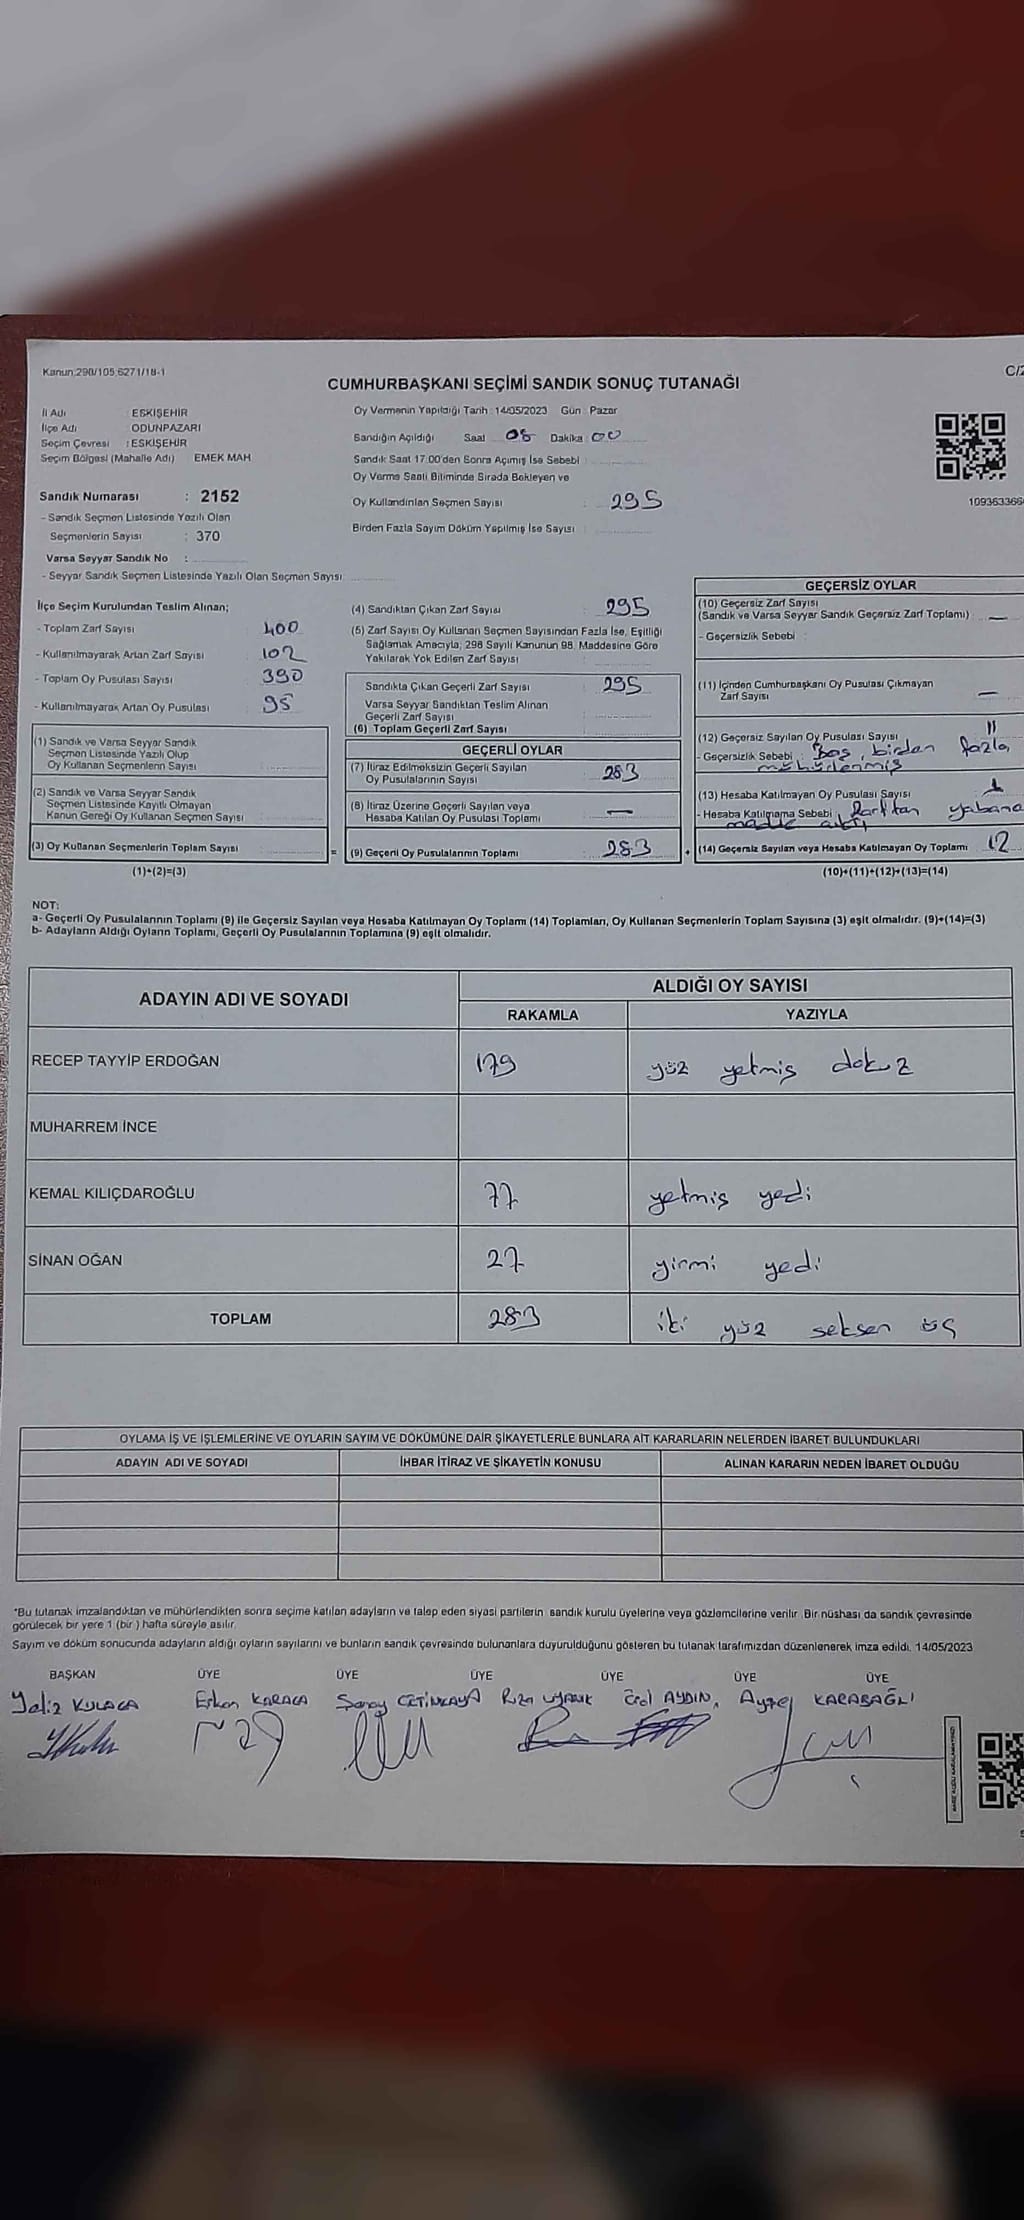 Kanun:298/105,6271/18-1
C/2
CUMHURBAŞKANI SEÇİMİ SANDIK SONUÇ TUTANAĞI
İl Adı : ESKİŞEHİR
İlçe Adı : ODUNPAZARI
Seçim Çevresi : ESKİŞEHİR
Seçim Bölgesi (Mahalle Adı) EMEK MAH.
Sandık Numarası : 2152
- Sandık Seçmen Listesinde Yazılı Olan
Seçmenlerin Sayısı : 370
Varsa Seyyar Sandık No :
- Seyyar Sandık Seçmen Listesinde Yazılı Olan Seçmen Sayısı:
Oy Vermenin Yapıldığı Tarih : 14/05/2023 Gün : Pazar
Sandığın Açıldığı Saat 08 Dakika 00
Sandık Saat 17:00'den Sonra Açılmış İse Sebebi :
Oy Verme Saati Bitiminde Sırada Bekleyen ve
Oy Kullandırılan Seçmen Sayısı : 295
Birden Fazla Sayım Döküm Yapılmış İse Sayısı :
109363366
İlçe Seçim Kurulundan Teslim Alınan;
- Toplam Zarf Sayısı : 400
- Kullanılmayarak Artan Zarf Sayısı : 102
- Toplam Oy Pusulası Sayısı : 390
- Kullanılmayarak Artan Oy Pusulası : 95
(1) Sandık ve Varsa Seyyar Sandık
Seçmen Listesinde Yazılı Olup
Oy Kullanan Seçmenlerin Sayısı :
(2) Sandık ve Varsa Seyyar Sandık
Seçmen Listesinde Kayıtlı Olmayan
Kanun Gereği Oy Kullanan Seçmen Sayısı :
(3) Oy Kullanan Seçmenlerin Toplam Sayısı :
(1)+(2)=(3)
(4) Sandıktan Çıkan Zarf Sayısı : 295
(5) Zarf Sayısı Oy Kullanan Seçmen Sayısından Fazla İse, Eşitliği
Sağlamak Amacıyla, 298 Sayılı Kanunun 98. Maddesine Göre
Yakılarak Yok Edilen Zarf Sayısı :
Sandıkta Çıkan Geçerli Zarf Sayısı : 295
Varsa Seyyar Sandıktan Teslim Alınan
Geçerli Zarf Sayısı :
(6) Toplam Geçerli Zarf Sayısı :
GEÇERLİ OYLAR
(7) İtiraz Edilmeksizin Geçerli Sayılan
Oy Pusulalarının Sayısı : 283
(8) İtiraz Üzerine Geçerli Sayılan veya
Hesaba Katılan Oy Pusulası Toplamı : —
= (9) Geçerli Oy Pusulalarının Toplamı : 283 +
GEÇERSİZ OYLAR
(10) Geçersiz Zarf Sayısı
(Sandık ve Varsa Seyyar Sandık Geçersiz Zarf Toplamı) : —
- Geçersizlik Sebebi :
(11) İçinden Cumhurbaşkanı Oy Pusulası Çıkmayan
Zarf Sayısı : —
(12) Geçersiz Sayılan Oy Pusulası Sayısı : 11
- Geçersizlik Sebebi : Boş, birden fazla
mühürlenmiş
(13) Hesaba Katılmayan Oy Pusulası Sayısı : 1
- Hesaba Katılmama Sebebi : Zarftan yabancı
madde çıktı
(14) Geçersiz Sayılan veya Hesaba Katılmayan Oy Toplamı : 12
(10)+(11)+(12)+(13)=(14)
NOT:
a- Geçerli Oy Pusulalarının Toplamı (9) ile Geçersiz Sayılan veya Hesaba Katılmayan Oy Toplam (14) Toplamları, Oy Kullanan Seçmenlerin Toplam Sayısına (3) eşit olmalıdır. (9)+(14)=(3)
b- Adayların Aldığı Oyların Toplamı, Geçerli Oy Pusulalarının Toplamına (9) eşit olmalıdır.
ADAYIN ADI VE SOYADI
ALDIĞI OY SAYISI
RAKAMLA YAZIYLA
RECEP TAYYİP ERDOĞAN 179 yüz yetmiş dokuz
MUHARREM İNCE
KEMAL KILIÇDAROĞLU 77 yetmiş yedi
SİNAN OĞAN 27 yirmi yedi
TOPLAM 283 iki yüz seksen üç
OYLAMA İŞ VE İŞLEMLERİNE VE OYLARIN SAYIM VE DÖKÜMÜNE DAİR ŞİKAYETLERLE BUNLARA AİT KARARLARIN NELERDEN İBARET BULUNDUKLARI
ADAYIN ADI VE SOYADI İHBAR İTİRAZ VE ŞİKAYETİN KONUSU ALINAN KARARIN NEDEN İBARET OLDUĞU
*Bu tutanak imzalandıktan ve mühürlendikten sonra seçime katılan adayların ve talep eden siyasi partilerin sandık kurulu üyelerine veya gözlemcilerine verilir. Bir nüshası da sandık çevresinde
görülecek bir yere 1 (bir) hafta süreyle asılır.
Sayım ve döküm sonucunda adayların aldığı oyların sayılarını ve bunların sandık çevresinde bulunanlara duyurulduğunu gösteren bu tutanak tarafımızdan düzenlenerek imza edildi. 14/05/2023
BAŞKAN ÜYE ÜYE ÜYE ÜYE ÜYE ÜYE
Yeliz KULACA Erkan KARACA Saray ÇETİNKAYA Rıza UYANIK Erol AYDIN Aysel KARABAĞLI